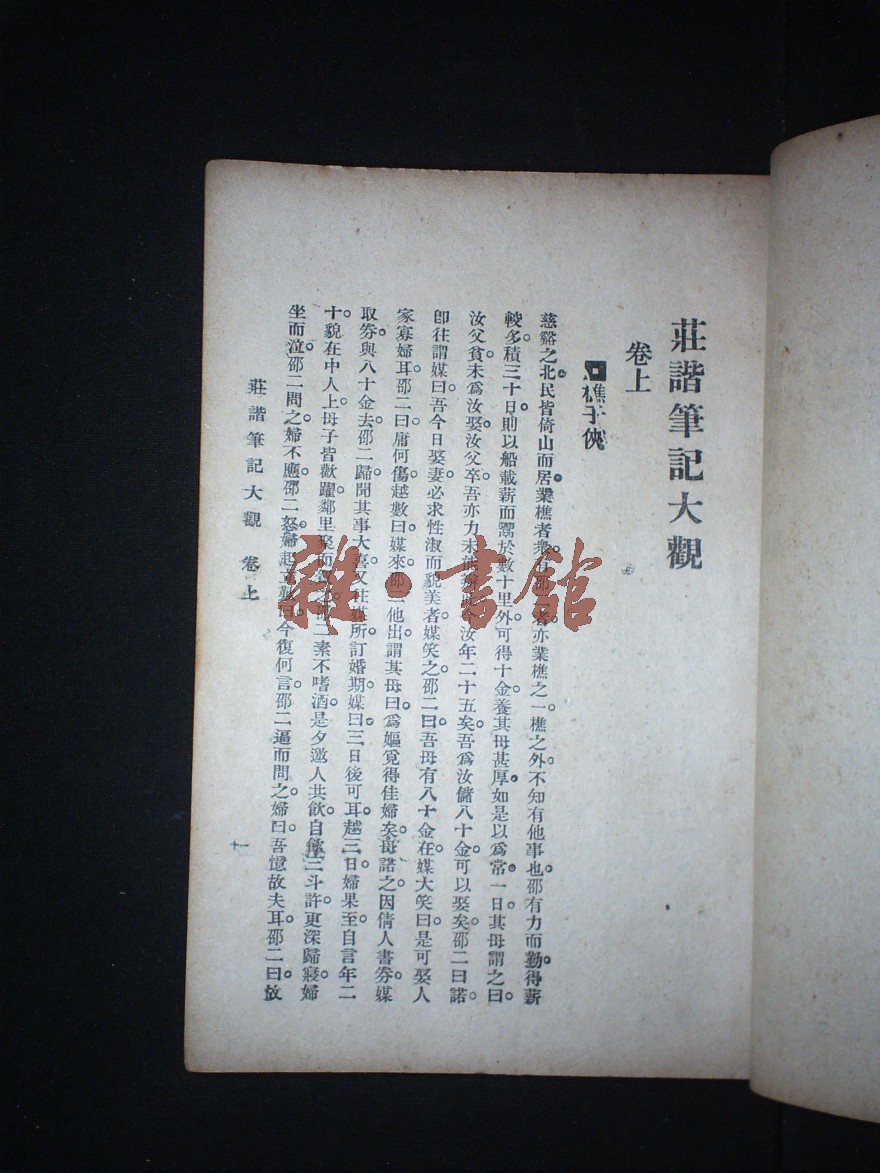 莊諧筆記大觀
卷上
樵子俠
慈谿之北民皆倚山而居業樵者衆有邵二者亦業樵之一樵之外。不知有他事也邵有力而勤得薪
較多積三十日則以船載薪而鬻於數十里外可得十金養其母甚厚如是以爲常一日。其母謂之曰
汝父貧未爲汝娶汝父卒吾亦力未能今汝年二十五矣吾爲汝儲八十金可以娶矣邵二曰諾
卽往謂媒曰吾今日娶妻必求性淑而貌美者媒笑之邵二曰吾母有八十金在媒大笑曰是可娶人
家寡婦耳邵二曰庸何傷越數日媒來邵二他出謂其母曰爲嫗覓得佳婦矣母諾之因倩人書券媒
取券與八十金去邵二歸聞其事大喜又往媒所訂婚期媒曰三日後可耳越三日婦果至自言年二
十。貌在中人上母子皆歡躍鄰里聚而邵二素不嗜酒是夕邀人共飲自飲三斗許更深歸寢婦
坐而泣邵二問之婦不應邵二怒婦起立曰今復何言邵二逼而問之婦曰吾憶故夫耳邵二曰故
莊諧筆記大觀 卷上
一
雜·書館